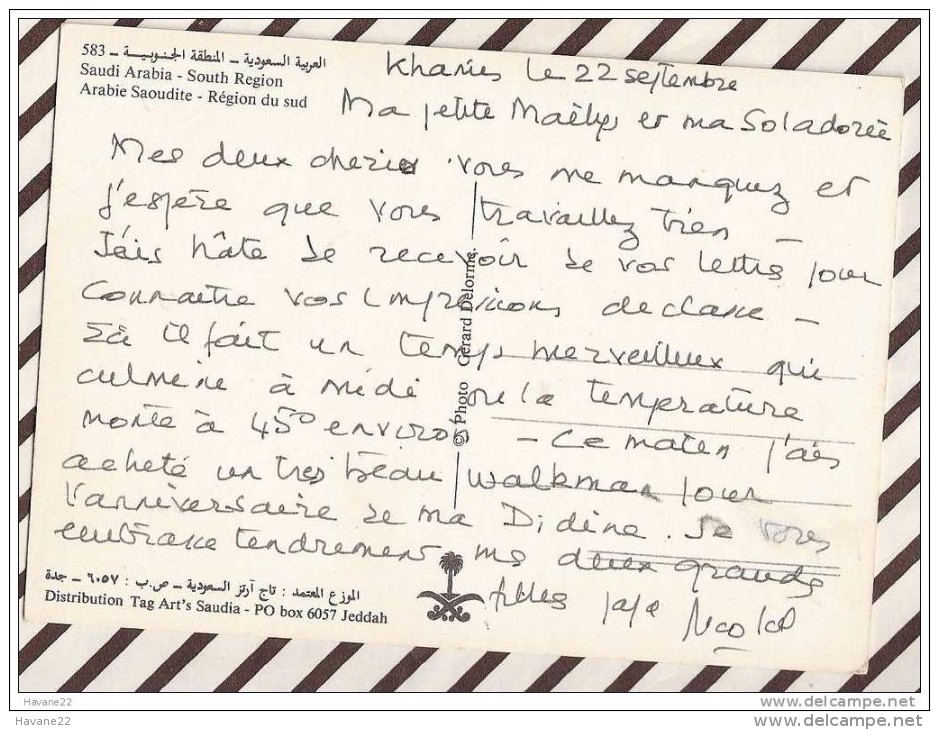 583 – العربية السعودية – المنطقة الجنوبية
Saudi Arabia - South Region
Arabie Saoudite - Région du sud
le 22 septembre
Ma petite Maëlys et ma Soladorée
Mes deux cheries vous me manquez et
j'espère que vous travaillez bien –
J'ais hâte de recevoir de vos lettres pour
connaitre vos impressions de classe –
il fait un temps merveilleux qui
culmine à midi ou la temperature
monte à 45° environ – Ce matin j'ais
acheté un tres beau walkman pour
l'anniversaire de ma Didine. Je vous
embrasse tendrement mes deux grandes
filles papa
© Photo Gérard Delorme.
الموزع المعتمد : تاج آرتز السعودية – ص.ب : ٦٠٥٧ – جدة
Distribution Tag Art's Saudia - PO box 6057 Jeddah
Havane22
www.delcampe.net
Havane22
www.delcampe.net